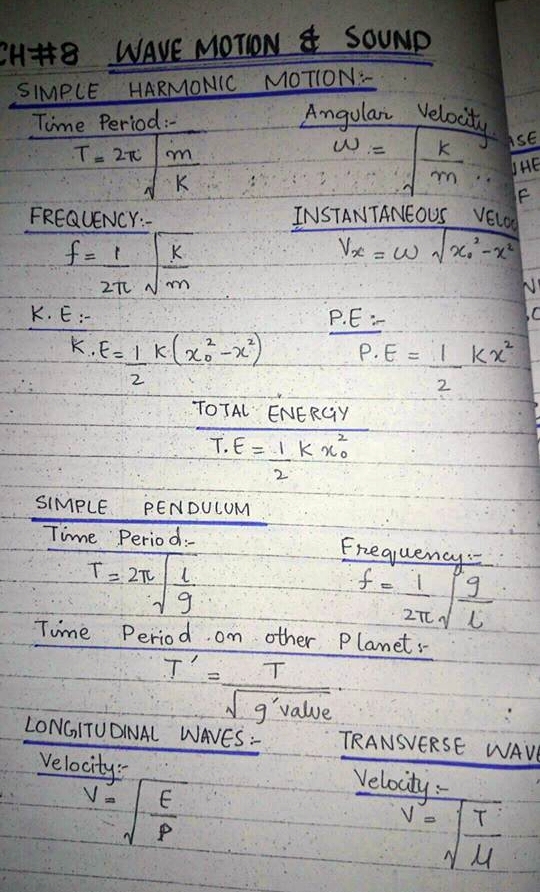 CH#8 WAVE MOTION & SOUND
SIMPLE HARMONIC MOTION:-
Time Period:-
T = 2π √(m/K)
Angular Velocity
ω = √(K/m)
FREQUENCY:-
f = 1/2π √(K/m)
INSTANTANEOUS VELOC
Vx = ω √x₀²-x²
K.E:-
K.E = 1/2 K(x₀²-x²)
P.E:-
P.E = 1/2 Kx²
TOTAL ENERGY
T.E = 1/2 K x₀²
SIMPLE PENDULUM
Time Period:-
T = 2π √(l/g)
Frequency:-
f = 1/2π √(g/l)
Time Period on other Planet:-
T' = T/√g'value
LONGITUDINAL WAVES:-
Velocity:-
V = √(E/ρ)
TRANSVERSE WAVE
Velocity:-
V = √(T/μ)